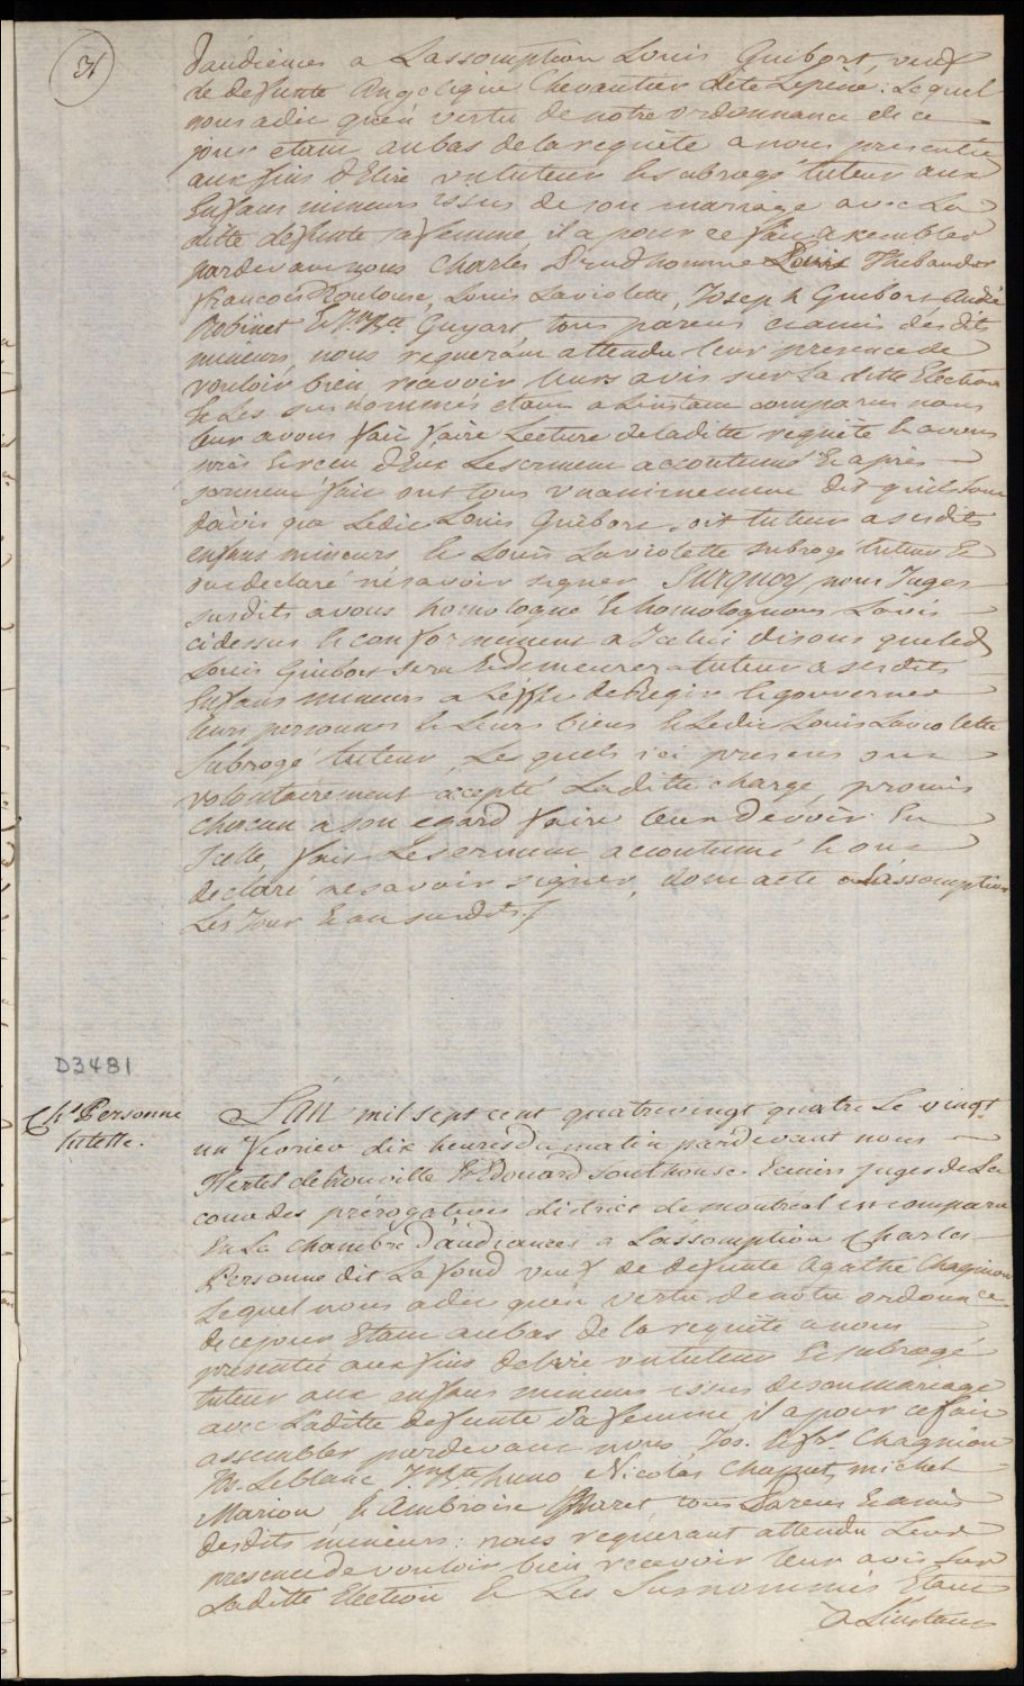 31
d'audiences a Lassomption Louis Guibort, veuf
de defunte Angelique Chevautier dite Lepine: Lequel
nous a dit qu'en vertu de notre ordonnance de ce
jour etant au bas de la requête a nous presentée
aux fins d'Elire un tuteur & subrogé tuteur aux
Enfans mineurs issus de son mariage avec La
ditte defunte sa femme il a pour ce fait assembler
pardevant nous Charles Prudhomme Louis Thebaudor
francois Toulouse, Louis Laviolette, Joseph Guibort André
Robinet & Jn Bte Guyart tous parens & amis desdits
mineurs, nous requerant attendu leur presence de
vouloir bien recevoir leurs avis sur La ditte Election
& Les susnommés etant a Linstant comparus nous
leur avons fait faire Lecture de laditte requête & avons
pris & receu d'Eux Le serment accoutumé & après
serment fait ont tous unanimement dit qu'ils sont
d'avis que Ledit Louis Guibort soit tuteur a sesdits
enfans mineurs & Louis Laviolette subrogé tuteur &
ont declaré ne savoir signer Surquoy nous Juges
susdits avons homologué & homologuons Lavis
cidessus & conformement a Icelui disons queled
Louis Guibort sera & demeurera tuteur a sesdits
Enfans mineurs a L'effet de Regir & gouverner
leurs personnes & Leurs biens & Ledit Louis Laviolette
Subrogé tuteur, Lesquels ici presens ont
volontairement accepté Laditte charge, promis
chacun a son egard faire leur devoir En
Icelle, fait Le serment accoutumé & ont
declaré ne savoir signer, dont acte a Lassomption
Les Jour & an susdits
D3481
Chs Personne
tutelle.
L'an mil sept cent quatrevingt quatre Le vingt
un fevrier dix heures du matin pardevant nous
Hertel de Rouville & Edouard Southouse Ecuiers juges de La
cour des prérogatives district de montreal est comparu
En La chambre d'audiances a Lassomption Charles
Personne dit Lafond veuf de defunte Agathe Chagnion
Lequel nous a dit qu'en vertu de notre ordonnance
de ce jour Etant au bas de la requête a nous
presentée aux fins delire un tuteur & subrogé
tuteur aux enfans mineurs issus de son mariage
avec Laditte defunte Sa femme, il a pour ce fait
assembler pardevant nous Jos. & frs Chagnion
Leblanc Jn Bte Nicolas Chaput, michel
Marion & Ambroise tous Parens & amis
desdits mineurs: nous requerant attendu Leur
presence de vouloir bien recevoir leur avis sur
Laditte Election & Les Surnommés Etant
a Linstant